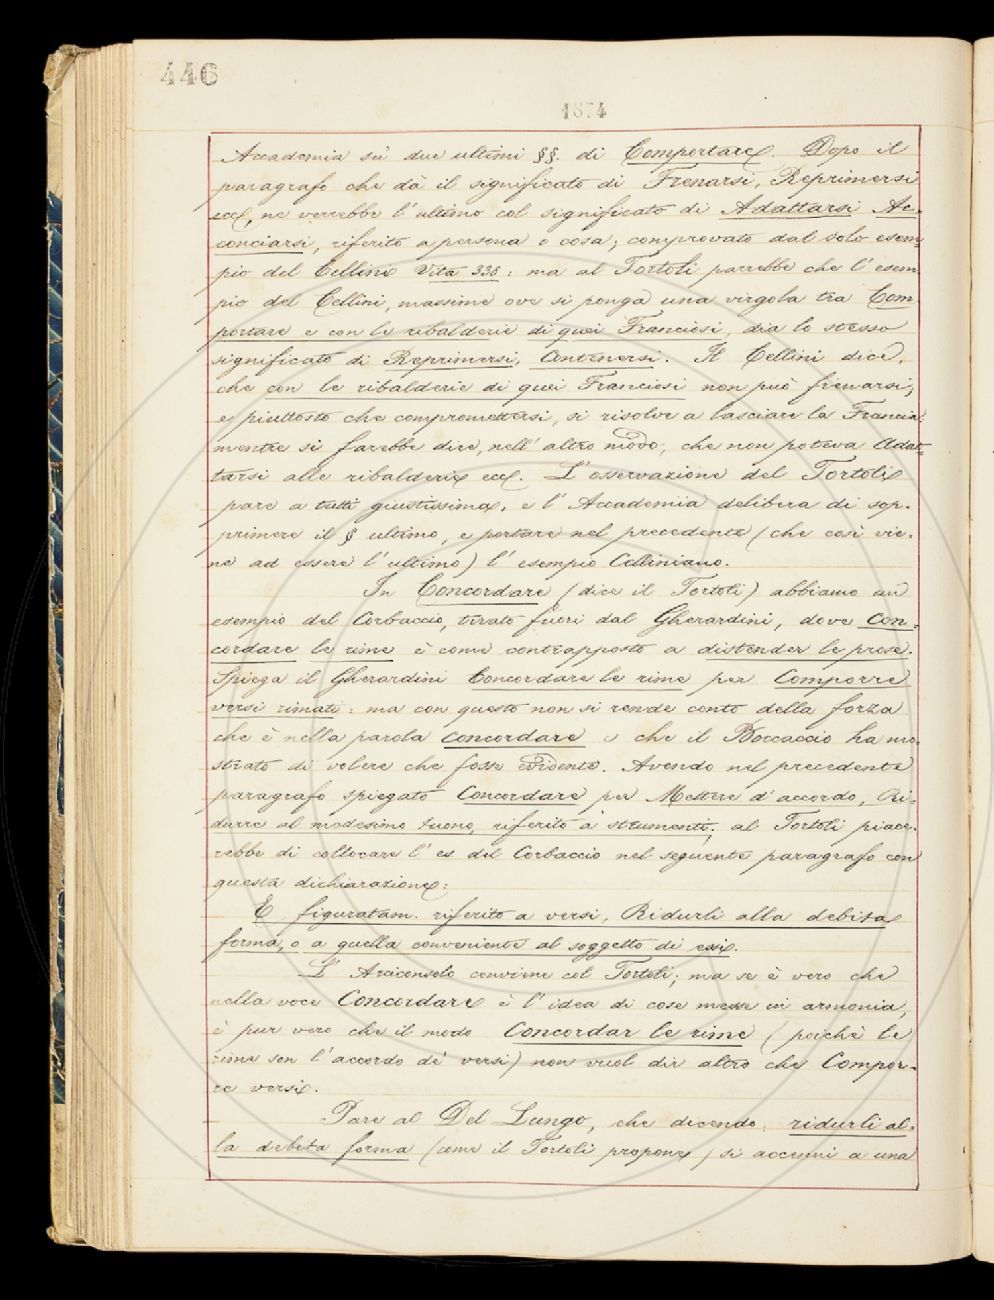 446
1874
Accademia sù due ultimi §§. di Comportare. Dopo il
paragrafo che dà il significato di Frenarsi, Reprimersi
ecc, ne verrebbe l'ultimo col significato di Adattarsi Ac-
conciarsi, riferito a persona o cosa; comprovato dal solo esem-
pio del Cellini Vita 338: ma al Tortoli parrebbe che l'esem
pio del Cellini, massime ove si ponga una virgola tra Com
portare e con le ribalderie di quei Franciosi, dia lo stesso
significato di Reprimersi, Contenersi. Il Cellini dice,
che con le ribalderie di quei Franciosi non può frenarsi;
e piuttosto che compromettersi, si risolve a lasciare la Francia:
mentre si farebbe dire, nell'altro modo, che non poteva Adat-
tarsi alle ribalderie ecc. L'osservazione del Tortoli
pare a tutti giustissima, e l'Accademia delibera di sop-
primere il § ultimo, e portare nel precedente (che così vie-
ne ad essere l'ultimo) l'esempio Celliniano.
In Concordare (dice il Tortoli) abbiamo un
esempio del Corbaccio, tirato fuori dal Gherardini, dove Con-
cordare le rime è come contrapposto a distender le prose.
Spiega il Gherardini Concordare le rime per Comporre
versi rimati: ma con questo non si rende conto della forza
che è nella parola Concordare e che il Boccaccio ha mo-
strato di volere che fosse evidente. Avendo nel precedente
paragrafo spiegato Concordare per Mettere d'accordo, Ri-
durre al medesimo tuono, riferito a strumenti; al Tortoli piace-
rebbe di collocare l'es del Corbaccio nel seguente paragrafo con
questa dichiarazione:
E figuratam. riferito a versi, Ridurli alla debita
forma, o a quella conveniente al soggetto di essi.
L'Arciconsolo conviene col Tortoli; ma se è vero che
nella voce Concordare è l'idea di cose messe in armonia,
è pur vero che il modo Concordar le rime (poichè le
rime son l'accordo de' versi) non vuol dir altro che Compor-
re versi.
Pare al Del Lungo, che dicendo: ridurli al-
la debita forma (come il Tortoli propone) si accenni a una